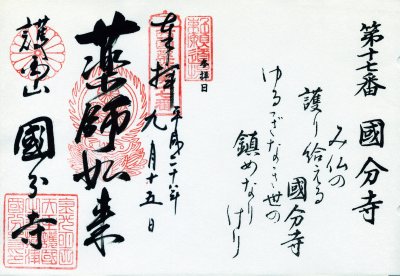 第十七番 國分寺
み仏の
護り給える
國分寺
ゆるぎなき世の
鎮めなりけり
奉拝
平成二十年
九月十五日
奉拝日
薬師如来
護国山
國分寺